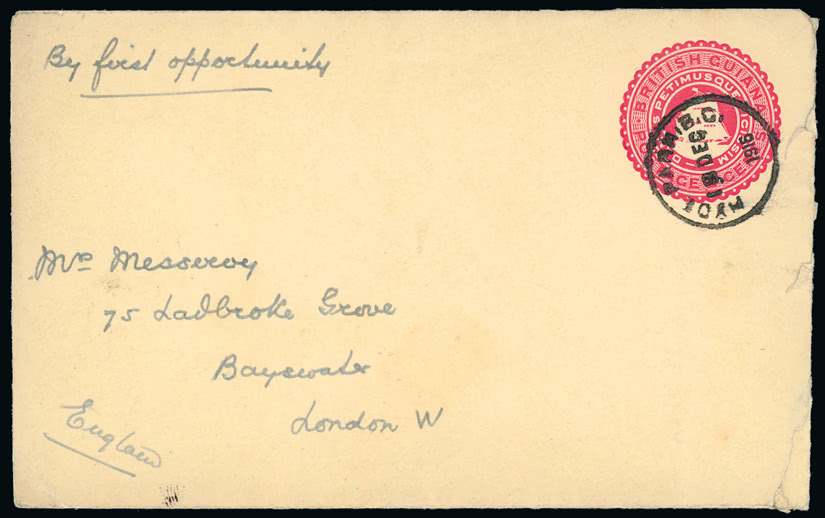 By first opportunity
BRITISH GUIANA
PETIMUSQUE
18 DEC
1916
Mrs Messervy
75 Ladbroke Grove
Bayswater
London W
England